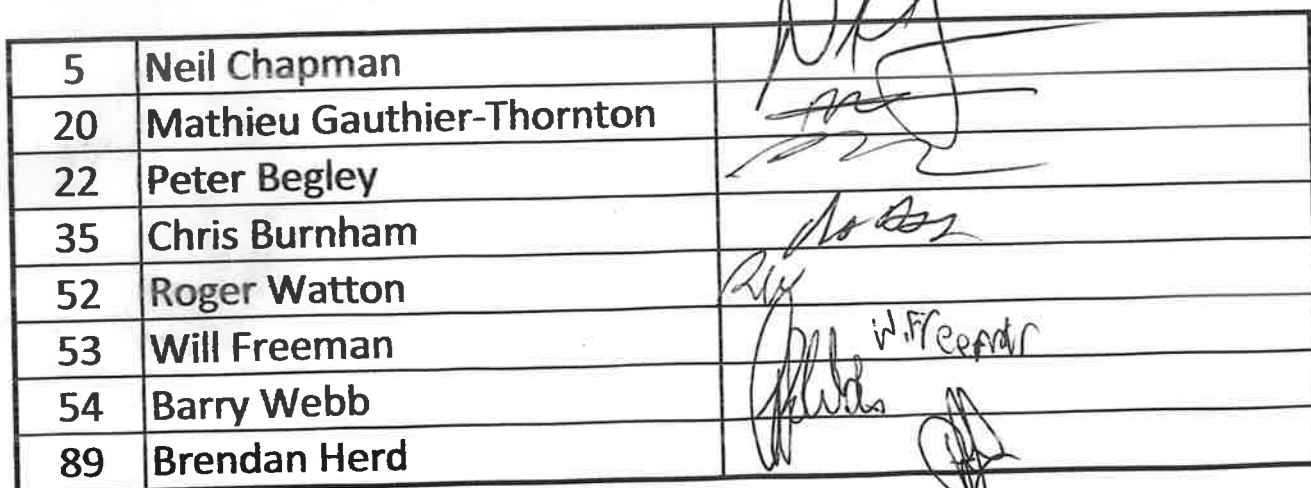 5 Neil Chapman
20 Mathieu Gauthier-Thornton
22 Peter Begley
35 Chris Burnham
52 Roger Watton
53 Will Freeman W.Freeman
54 Barry Webb
89 Brendan Herd